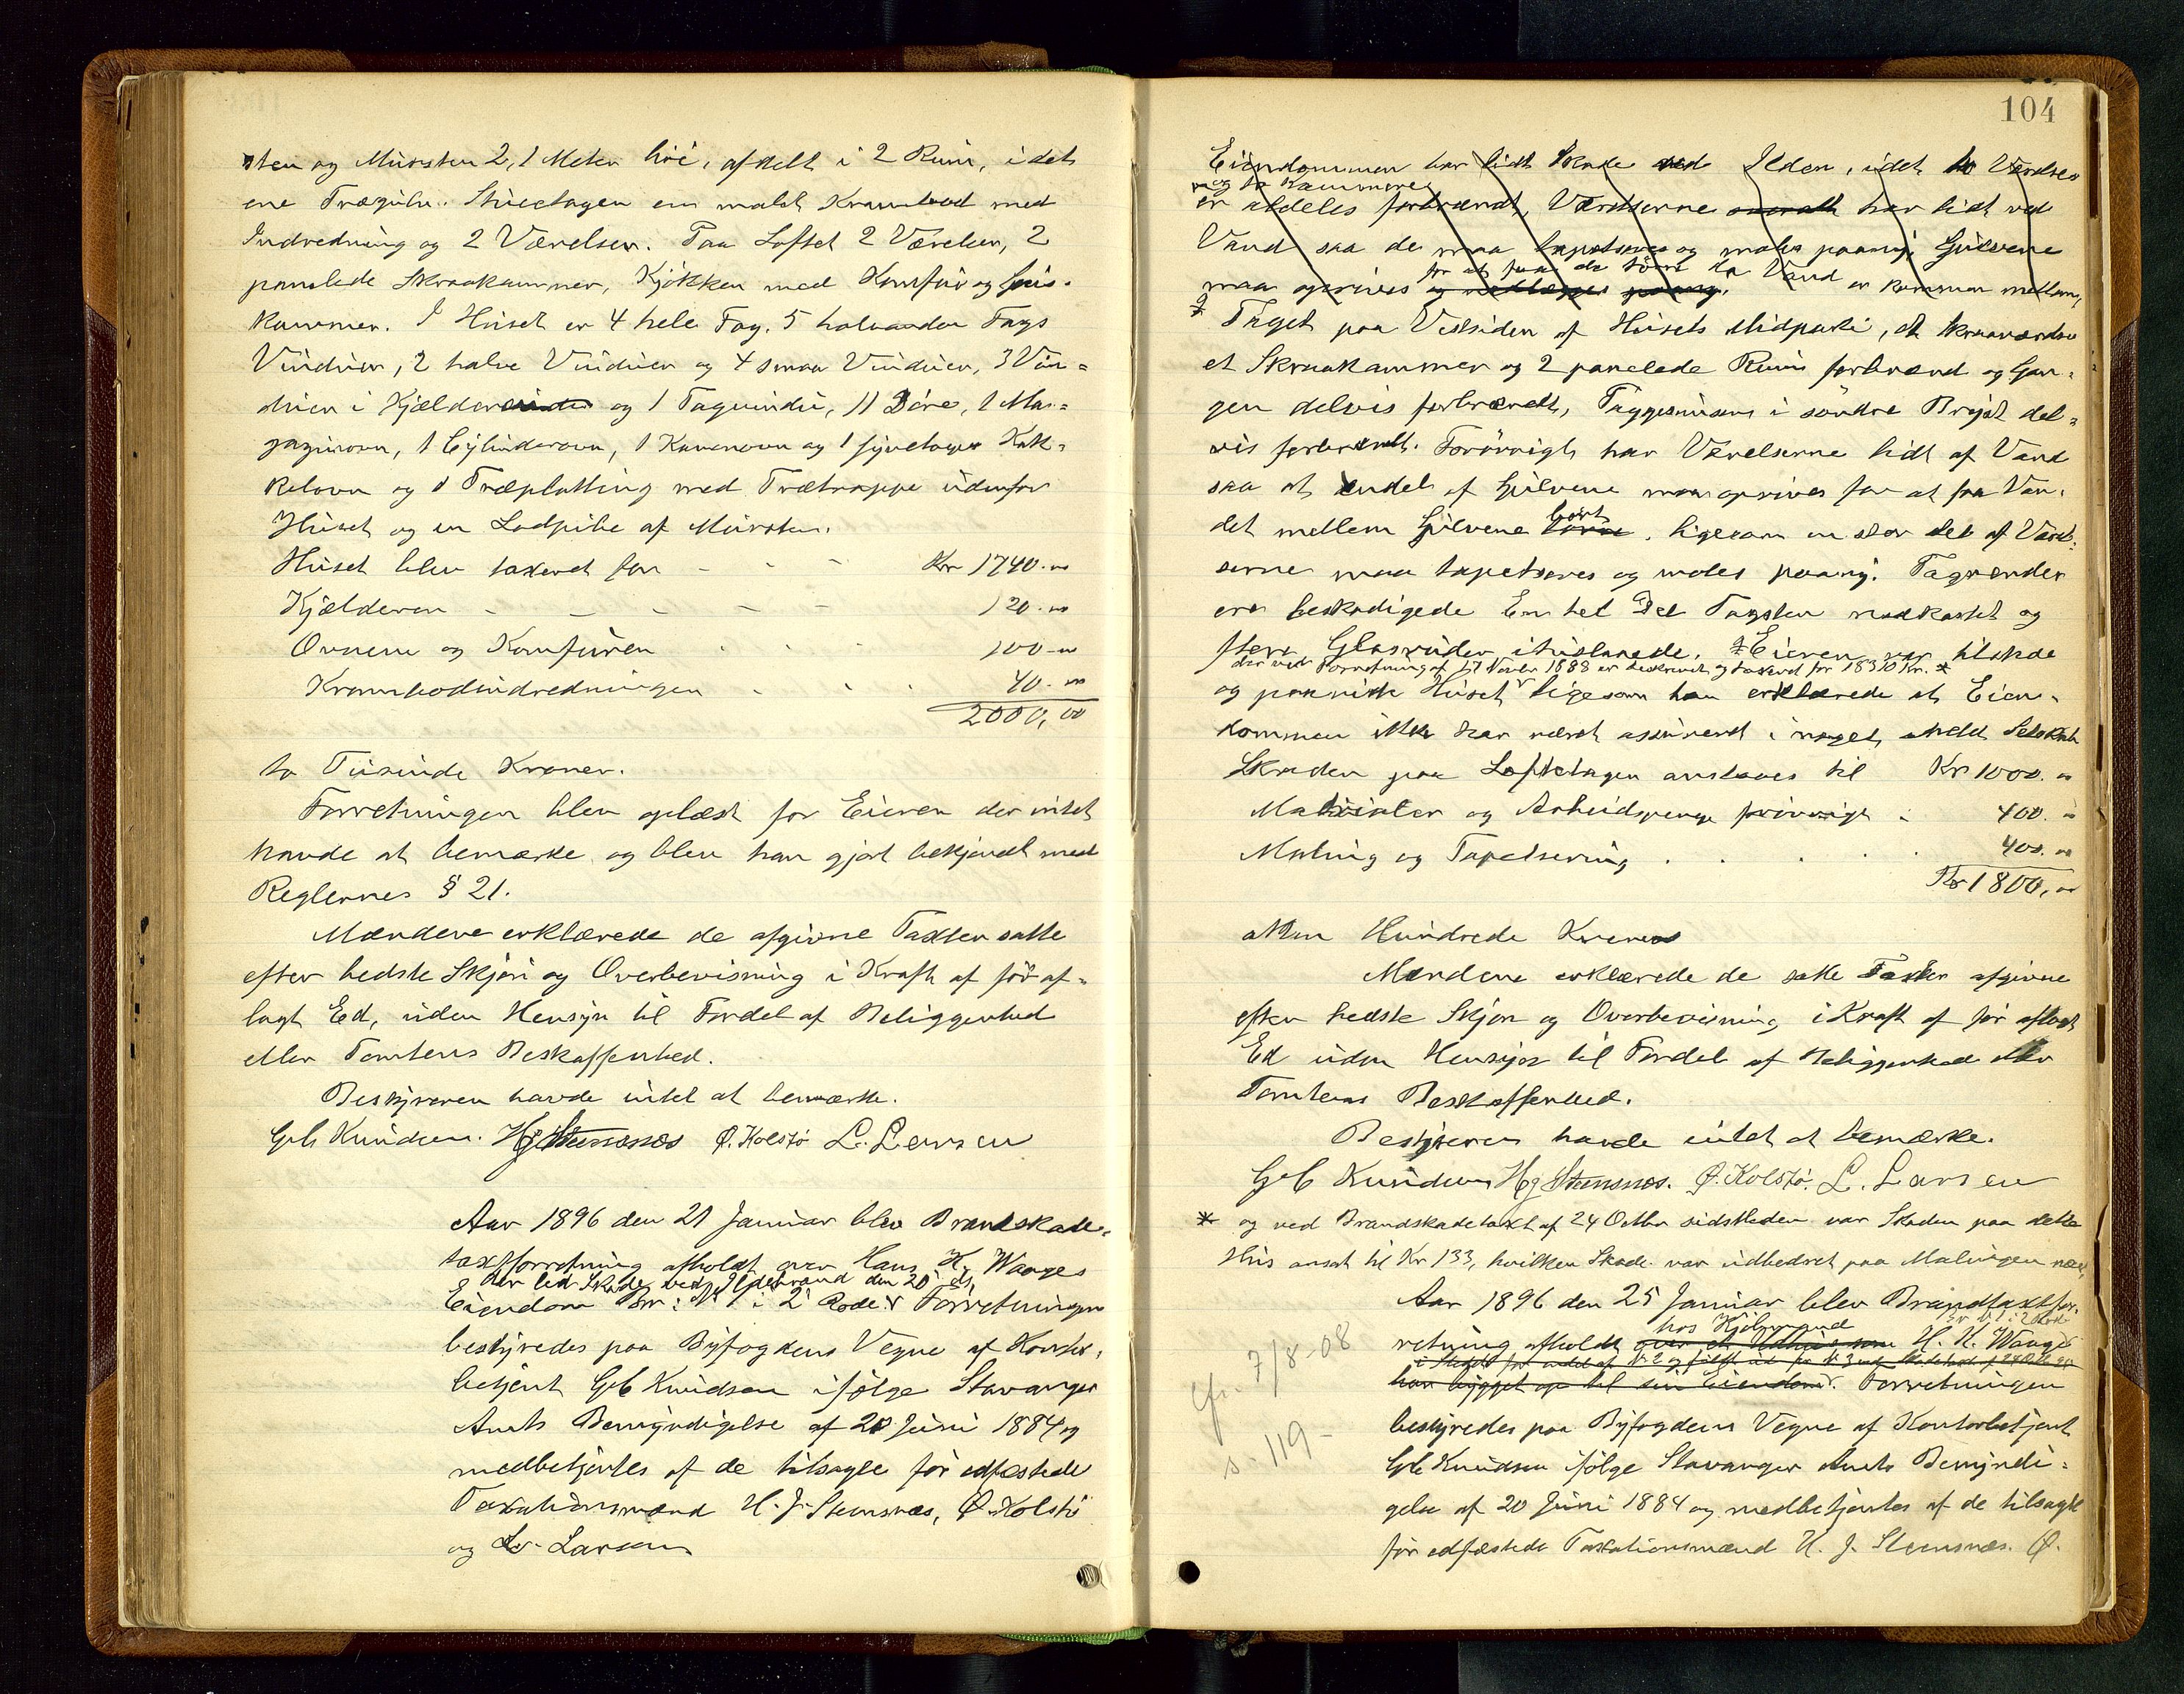 sten og Mursten 2,1 Meter höi, afdelt i 2 Rum, i det
ene Trægulv. Stueetagen em malet Krambod med
Indredning og 2 Værelser. Paa Loftet 2 Værelser, 2
panelede Skraakammer, Kjökken med Komfur og Spis-
kammer. I Huset er 4 hele Fag, 5 halvanden Fags
Vinduer, 2 halve Vinduer og 4 smaa Vinduer, 3 Vin=
duer i Kjælderen og 1 Tagvindu, 11 Döre, 1 Ma-
gasinovn, 1 Cylinderovn, 1 Kanonovn og 1 Kak-
kelovn og 1 Træplatting med Trætrappe udenfor
Huset og en Lodpibe af Mursten.
Huset blev taxeret for - - - Kr 1740.00
Kjælderen - - - - - 120.00
Ovnene og Komfuren . . . 100-00
Krambodindredningen . . . 40.00
2000,00
to Tusinde Kroner.
Forretningen blev oplæst for Eieren der intet
havde at bemærke og blev han gjort bekjendt med
Reglernes § 21.
Mændene erklærede de afgivne Taxter satte
efter bedste Skjön og Overbevisning i Kraft af för af-
lagt Ed, uden Hensyn til Fordel af Beliggenhed
eller Tomtens Beskaffenhed.
Bestyreren havde intet at bemærke.
Gab Knudsen. H J Stensnæs Ø. Kolstø L. Larsen
Aar 1896 den 21 Januar blev Brandskade-
taxtforretning afholdt over Hans H. Waages
der led Skade ved Ildebrand den 20 ds.
Eiendom Br: No 1 i 2 Rode. Forretningen
bestyredes paa Byfogdens Vegne af Kontor-
betjent Gab Knudsen ifölge Stavanger
Amts Bemyndigelse af 20 Juni 1884 og
medbetjentes af de tilsagte för edfæstede
Taxationsmænd H. J. Stensnæs, Ø Kolstö
og L. Larsen
104
Eiendommen har lidt Skade ved Ilden, idet to Værelser
og to Kammere
er aldeles forbrændt, Værelserne har lidt ved
Vand saa de maa tapetseres og males paany. Gulvene
for at faa de törre da Vand er kommen mellem,
maa oprives og nedlægges paany.
Taget paa Vestsiden af Husets Midparti, et Skraaværelse
et Skraakammer og 2 panelede Rum forbrænd og Gan-
gen delvis forbrændt, i söndre Bryst del-
vis forbrændt. Forövrigt har Værelserne lidt af Vand
saa at endel af Gulvene maa oprives for at faa Van-
det mellem Gulvene bort, ligesom en stor del af Værel-
serne maa tapetseres og males paany. Tagrender
ere beskadigede En hel Del Tagsten nedkastet og
flere Glasruder ituslaaede. Eieren var tilstede
der ved Forretning af 17 Novbr 1888 er beskrevet og taxeret for 1830 Kr. *
og paaviste Huset ligesom han erklærede at Eien-
dommen ikke har været assureret i noget andet Selskab
Skaden paa Loftetagen ansloges til Kr 1000.00
Materialer og Arbeidspenge forövrigt : 400.00
Maling og Tapetsering . . . . 400.00
Kr 1800,00
atten Hundrede Kroner
Mændene erklærede de satte Taxter afgivne
efter bedste Skjön og Overbevisning i Kraft af för aflagt
Ed uden Hensyn til Fordel af Beliggenhed eller
Tomtens Beskaffenhed.
Bestyreren havde intet at bemærke.
Gab Knudsen H J Stensnæs. Ø. Kolstø. L. Larsen
* og ved Brandskadetaxt af 24 Octbr sidstleden var Skaden paa dette
Hus ansat til Kr 133, hvilken Skade var udbedret paa Malingen nær,
Aar 1896 den 25 Januar blev Brandtaxtfor-
hos Kjöbmand
retning afholdt over et Udhus som H. H. Waage
har bygget op til sin Eiendom. Forretningen
bestyredes paa Byfogdens Vegne af Kontorbetjent
Gab Knudsen ifölge Stavanger Amts Bemyndi-
gelse af 20 Juni 1884 og medbetjentes af de tilsagte
för edfæstede Taxationsmænd H. J. Stensnæs. Ø.
cfr. 7/8-08
s. 119-